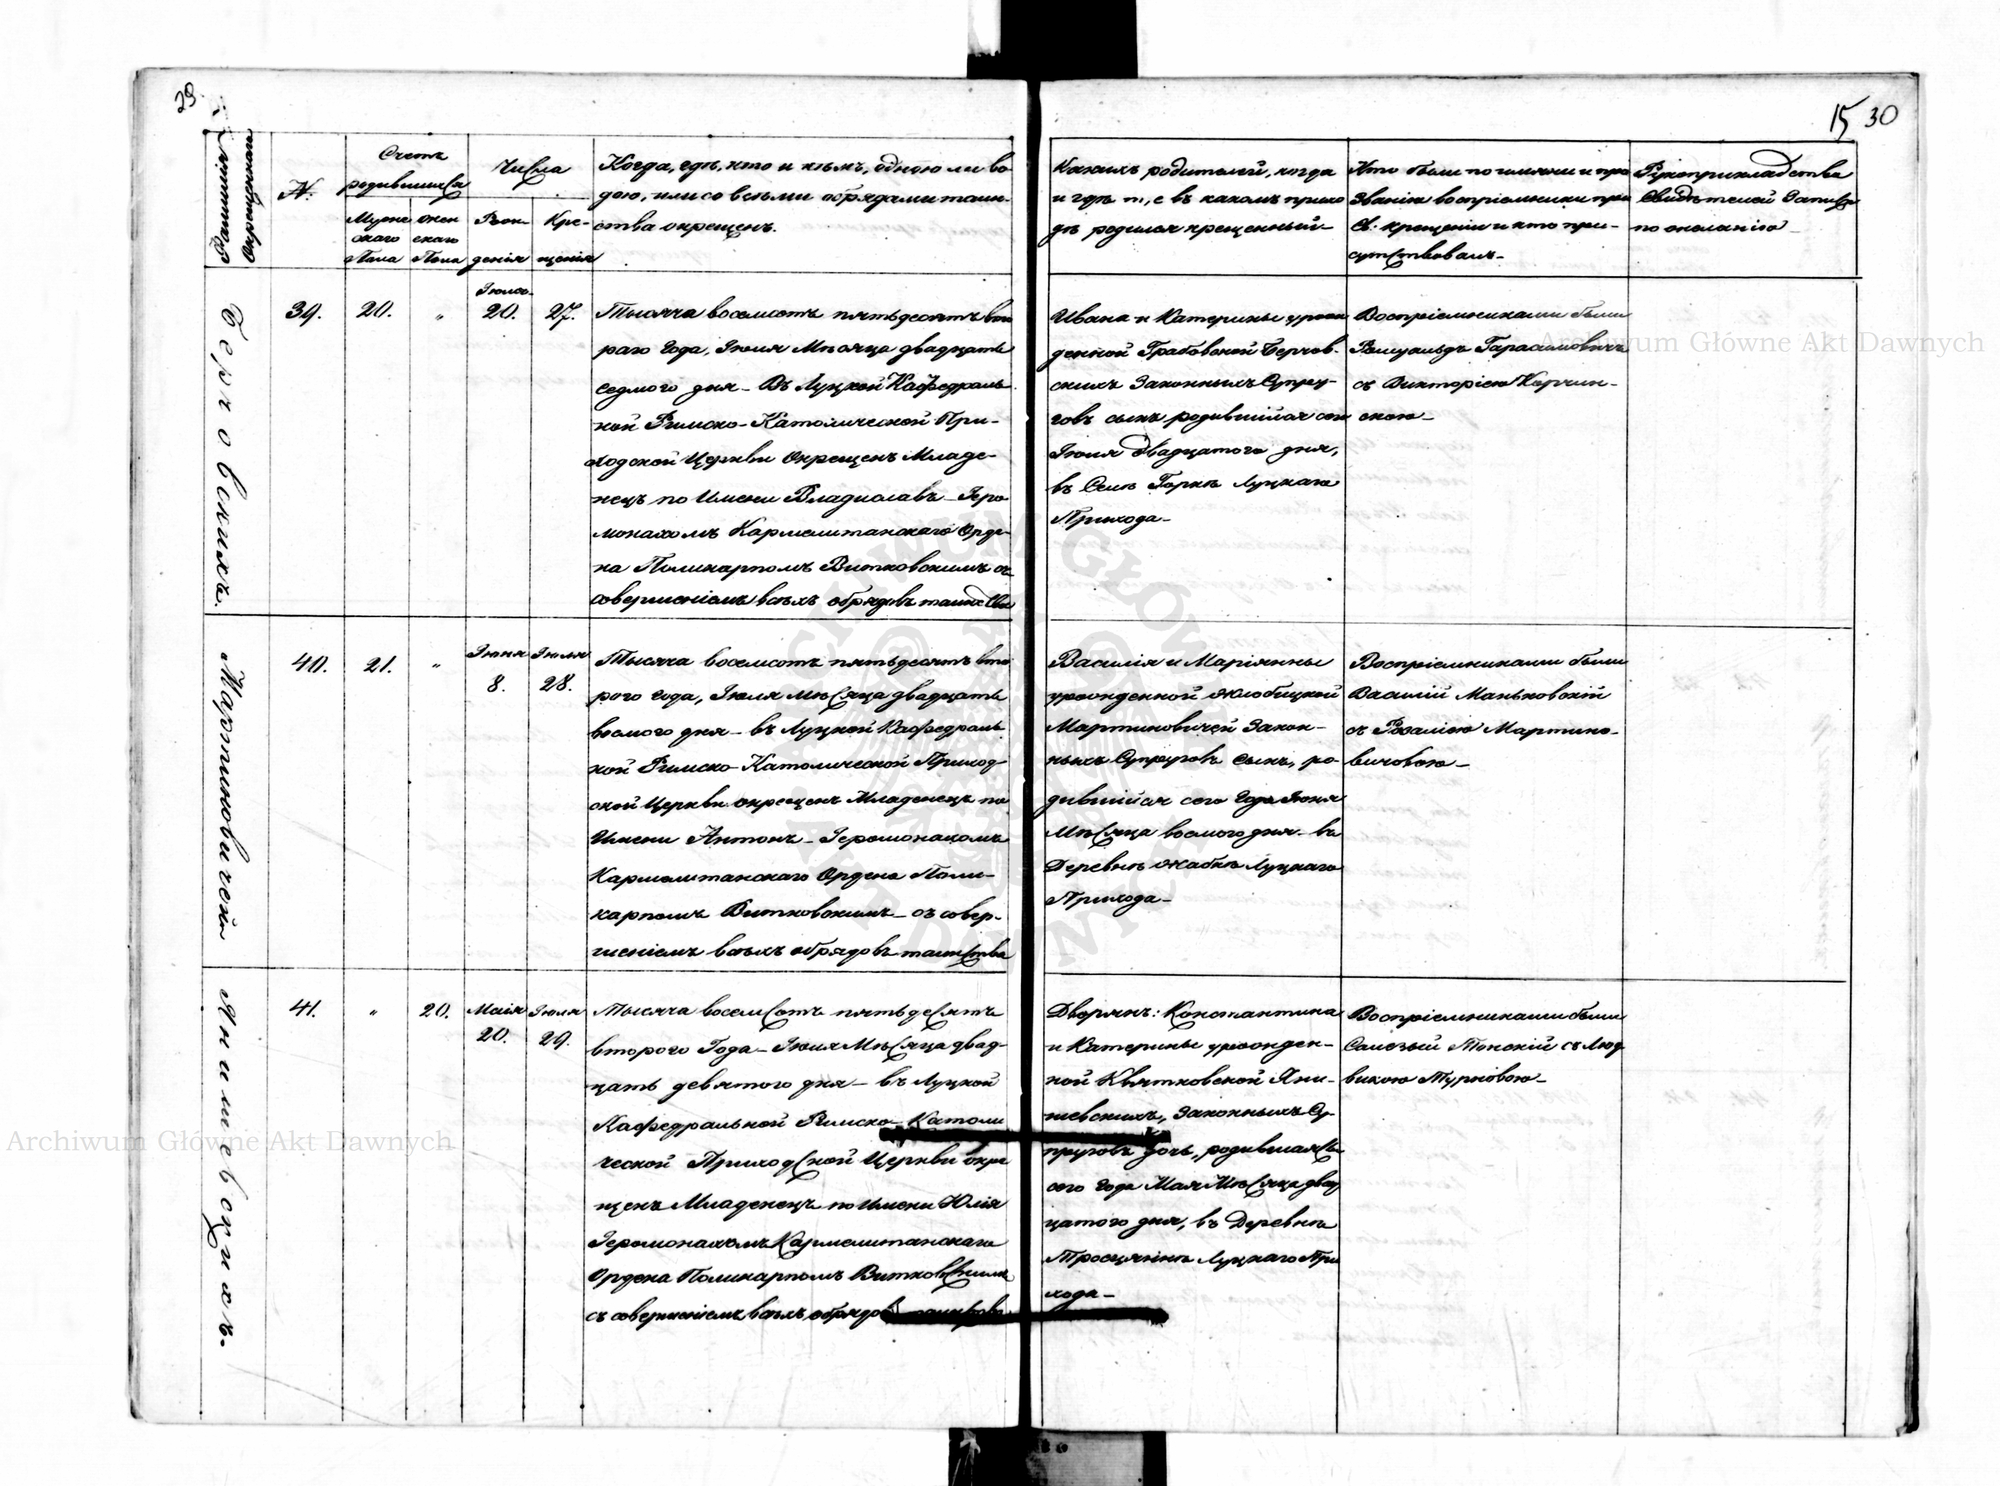 29.
15 30
Фамилія
Окрещеннаго
N.
Счетъ
родившихся
Мужескаго
Пола
Женскаго
Пола
Числа
Рож-
денія
Кре-
щенія
Когда, гдѣ, кто и кѣмъ, одною ли во
дою, или со всѣми обрядами таин-
ства окрещенъ.
Какихъ родителей, когда
и гдѣ т, е въ какомъ прихо
дѣ родился крещенный
Кто были по имени и про
Званію воспріемники при
Св. крещеніи и кто при-
сутствовалъ
Рукоприкладства
Свидѣтелей Записи
по желанію
39.
20.
"
Іюля
20.
27.
Тысяча восемсотъ пятьдесятъ вто
раго Года, Іюля Мѣсяца двадцать
седмого дня – Въ Луцкой Кафедраль
ной Римско-Католической При-
ходской Церкви Окрещенъ Младе-
нецъ по Имени Владиславъ – Іеро
монахомъ Кармелитанскаго Орде-
на Поликарпомъ Витковскимъ съ
совершеніемъ всѣхъ обрядовъ таинства
Ивана и Катерины урож
денной Грабовской
скихъ Законныхъ Супру-
говъ сынъ родившійся сего
Іюля двадцатого дня,
въ Селѣ Горкѣ Луцкаго
Прихода –
Воспріемниками были
Ромуальдъ Гарасимовичъ
съ Викторіею Карчин-
скою –
40.
21.
"
Іюня
8.
Іюля
28.
Тысяча восемсотъ пятьдесятъ вто
рого года, Іюля Мѣсяца двадцать
восмого дня – въ Луцкой Кафедраль
ной Римско-Католической Приход
ской Церкви окрещенъ Младенецъ по
Имени Антонъ – Іеромонахомъ
Кармелитанскаго Ордена Поли-
карпомъ Витковскимъ – съ совер-
шеніемъ всѣхъ обрядовъ таинства
Мартиновичей
Василія и Маріянны
урожденной
Мартиновичей Закон-
ныхъ Супруговъ сынъ, ро-
дившійся сего Года Іюня
Мѣсяца восмого дня – въ
Деревнѣ Жабкѣ Луцкаго
Прихода –
Воспріемниками были
Василій Маньковскій
съ Розаліею Мартино-
вичовою –
41.
"
20.
Маія
20.
Іюля
29.
Тысяча восемсотъ пятьдесятъ
второго Года – Іюля Мѣсяца двад-
цать девятого дня – въ Луцкой
Кафедральной Римско Католи
ческой Приходской Церкви окре
щенъ Младенецъ по Имени Юлія
Іеромонахомъ Кармелитанскаго
Ордена Поликарпомъ Витковскимъ
съ совершеніемъ всѣхъ обрядовъ таинства
Янишевскихъ.
Дворянъ: Константина
и Катерины урожден-
ной Квятковской Яни-
шевскихъ, Законныхъ Су-
пруговъ дочь, родившаяся
сего Года Мая Мѣсяца двад
цатого дня, въ Деревнѣ
Тросцянкѣ Луцкаго При
хода –
Воспріемниками были
съ Люд
викою
Archiwum Główne Akt Dawnych
Archiwum Główne Akt Dawnych